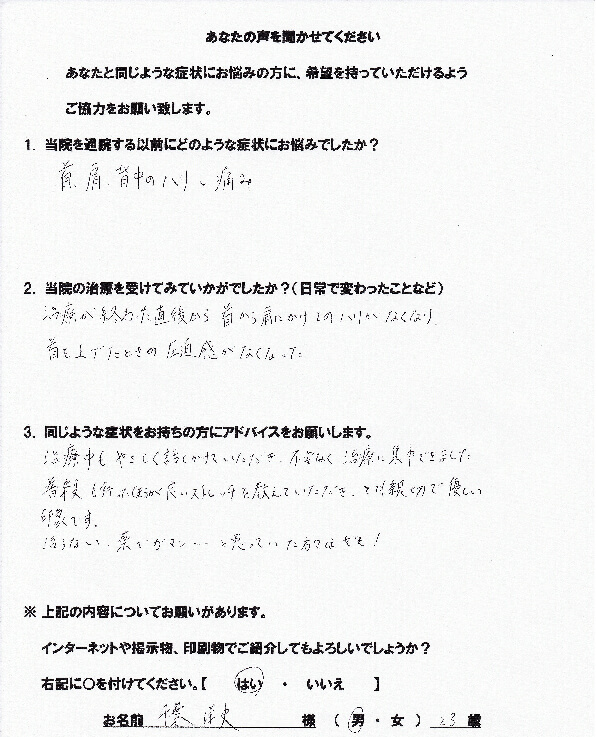 あなたの声を聞かせてください
あなたと同じような症状にお悩みの方に、希望を持っていただけるよう
ご協力をお願い致します。
1. 当院を通院する以前にどのような症状にお悩みでしたか？
首、肩、背中のハリ、痛み
2. 当院の治療を受けてみていかがでしたか？（日常で変わったことなど）
治療が終わった直後から首から肩にかけてのハリがなくなり、
首を上げたときの圧迫感がなくなった
3. 同じような症状をお持ちの方にアドバイスをお願いします。
治療中もやさしく話しかけていただき、不安なく治療に集中できました
普段も行ったほうが良いストレッチを教えていただき、とても親切で優しい
印象です。
治らないし、薬でガマン… と思っていた方々は
※ 上記の内容についてお願いがあります。
インターネットや掲示物、印刷物でご紹介してもよろしいでしょうか？
右記に○を付けてください。【 はい ・ いいえ 】
お名前 様 （ 男 ・ 女 ） 23 歳